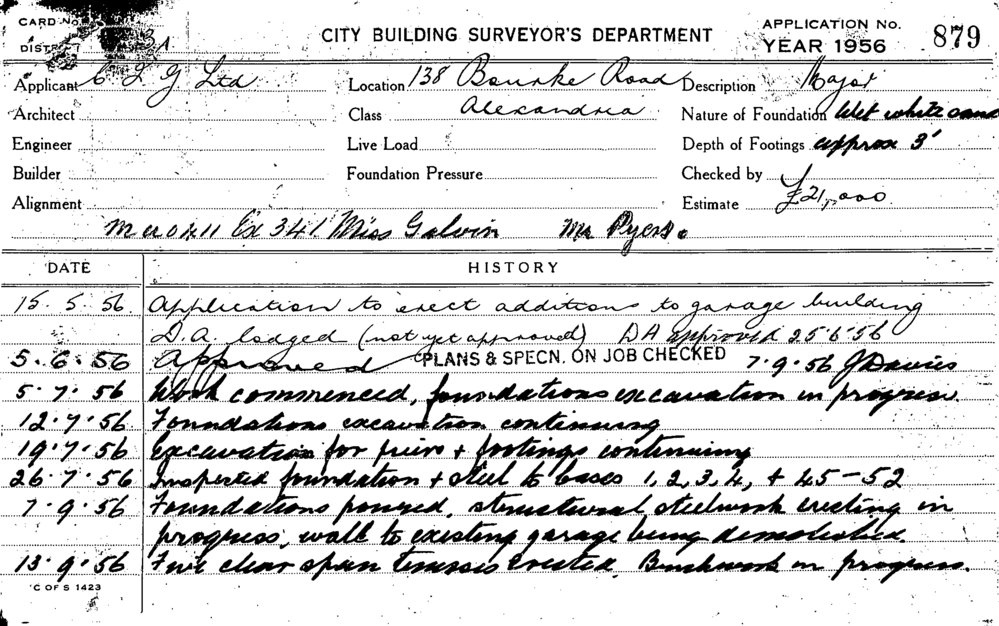 CARD No.
DISTRICT 3A
CITY BUILDING SURVEYOR'S DEPARTMENT
APPLICATION No. 879
YEAR 1956
Applicant C I G Ltd Location 138 Bourke Road Description Major
Architect Class Alexandria Nature of Foundation Wet white sand
Engineer Live Load Depth of Footings approx 3'
Builder Foundation Pressure Checked by
Alignment Estimate £21,000
Ex 341 Miss Galvin Mr Pyers.
DATE HISTORY
15. 5. 56 Application to erect additions to garage building
D.A. lodged (not yet approved) DA approved 25.6.56
5. 6. 56 Approved PLANS & SPECN. ON JOB CHECKED 7.9.56 J Davies
5. 7. 56 Work commenced, foundations excavation in progress.
12.7.56 Foundations excavation continuing
19.7.56 Excavation for piers + footings continuing
26.7.56 Inspected foundation + steel to bases 1, 2, 3, 4, + 45-52
7.9.56 Foundations poured, structural steelwork erecting in
progress, wall to existing garage being demolished
13.9.56 Five clear span trusses erected. Brickwork in progress.
C OF S 1423